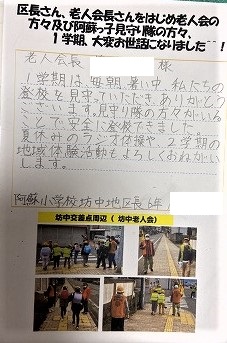 区長さん、老人会長さんをはじめ老人会の
方々及び阿蘇っ子見守り隊の方々、
1学期、大変お世話になりました！
老人会長 様
1学期は、毎朝、暑い中、私たちの
登校を見守っていただき、ありがとう
ございます。見守り隊の方々がいる
ことで安全に登校できました。
夏休みのラジオ体操や、2学期の
地域体験活動もよろしくおねがい
します。
阿蘇小学校坊中地区長6年
坊中交差点周辺（坊中老人会）